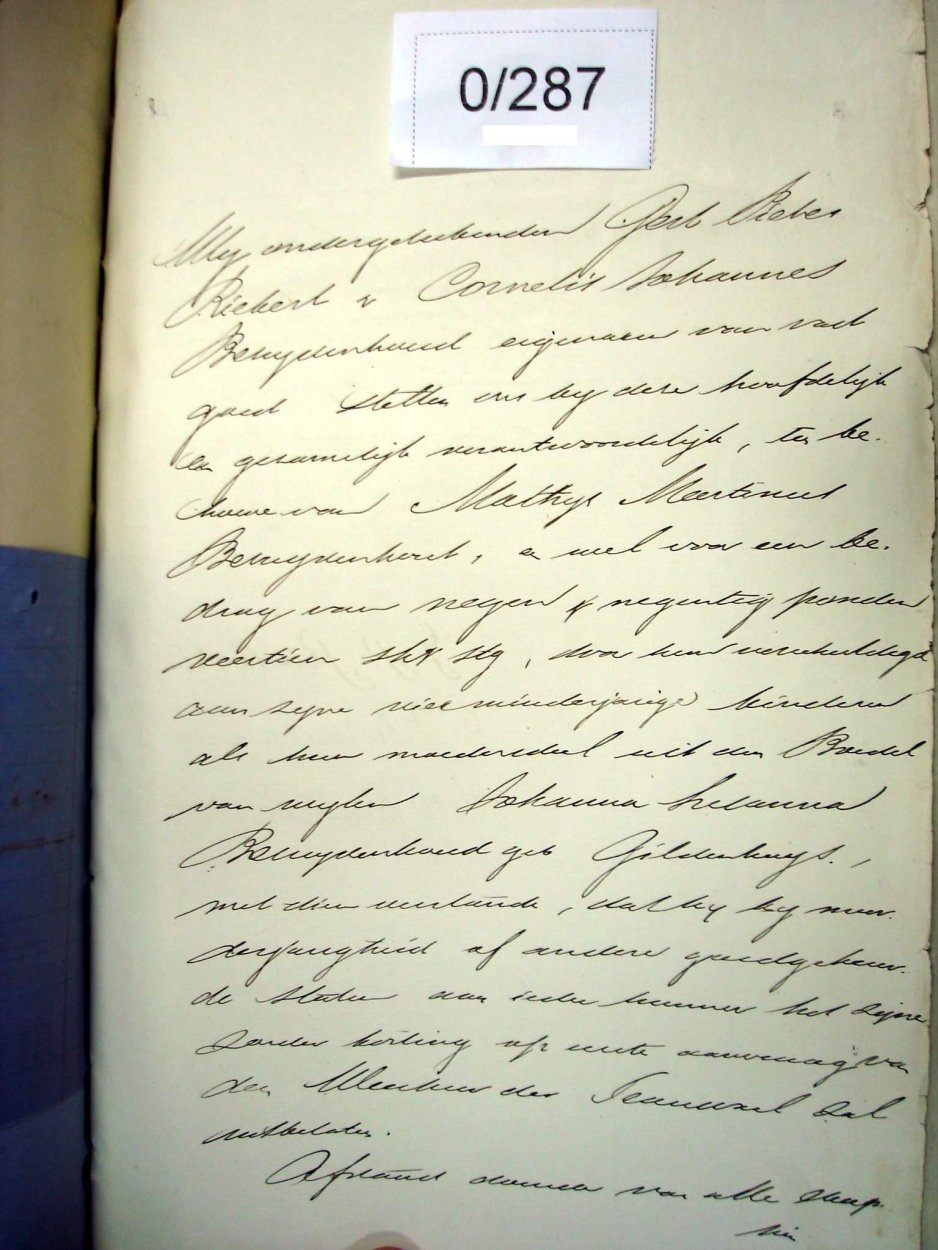 0/287
Wy ondergeteekenden Gert Pieter
Riekert & Cornelis Johannes
Bezuydenhoud eigenaren van vast
goed stellen ons by deze hoofdelijk
en gezamelijk verantwoordelijk, ten be-
hoeve van Mathys Martinus
Bezuydenhout, en wel voor een be-
drag van negen & negentig ponden
veertien sh stg, door hem verschuldigd
aan zyne minderjarige kinderen
als hun moedersdeel uit den Boedel
van wylen Johanna Susanna
Bezuydenhoud geb Gildenhuys.,
met dien verstande, dat hy by meer-
derjarigheid of andere goedgekeur-
de staten aan ieder hunner het zijne
zonder korting op eerste aanvraag van
den Meester der Transvaal zal
uitbetalen.
Afstand doende van alle